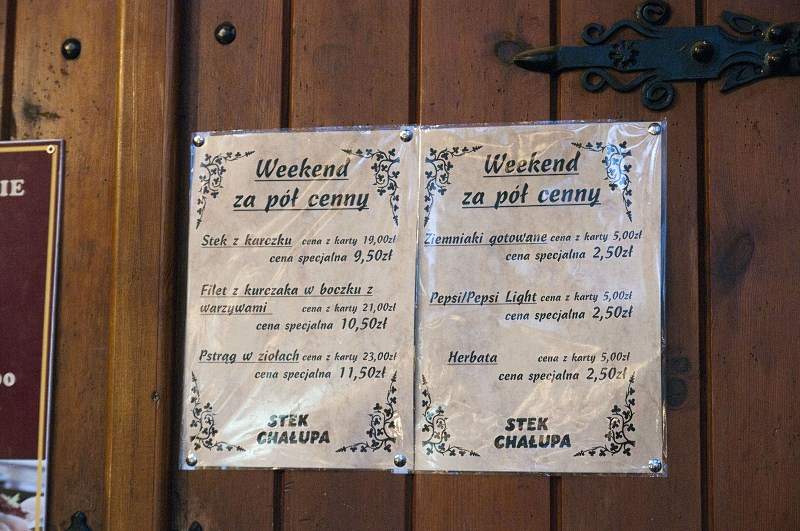 IE
00
Weekend
za pół cenny
Stek z karczku cena z karty 19,00zł
cena specjalna 9,50zł
Filet z kurczaka w boczku z
warzywami cena z karty 21,00zł
cena specjalna 10,50zł
Pstrąg w ziołach cena z karty 23,00zł
cena specjalna 11,50zł
STEK
CHAŁUPA
Weekend
za pół cenny
Ziemniaki gotowane cena z karty 5,00zł
cena specjalna 2,50zł
Pepsi/Pepsi Light cena z karty 5,00zł
cena specjalna 2,50zł
Herbata cena z karty 5,00zł
cena specjalna 2,50zł
STEK
CHAŁUPA